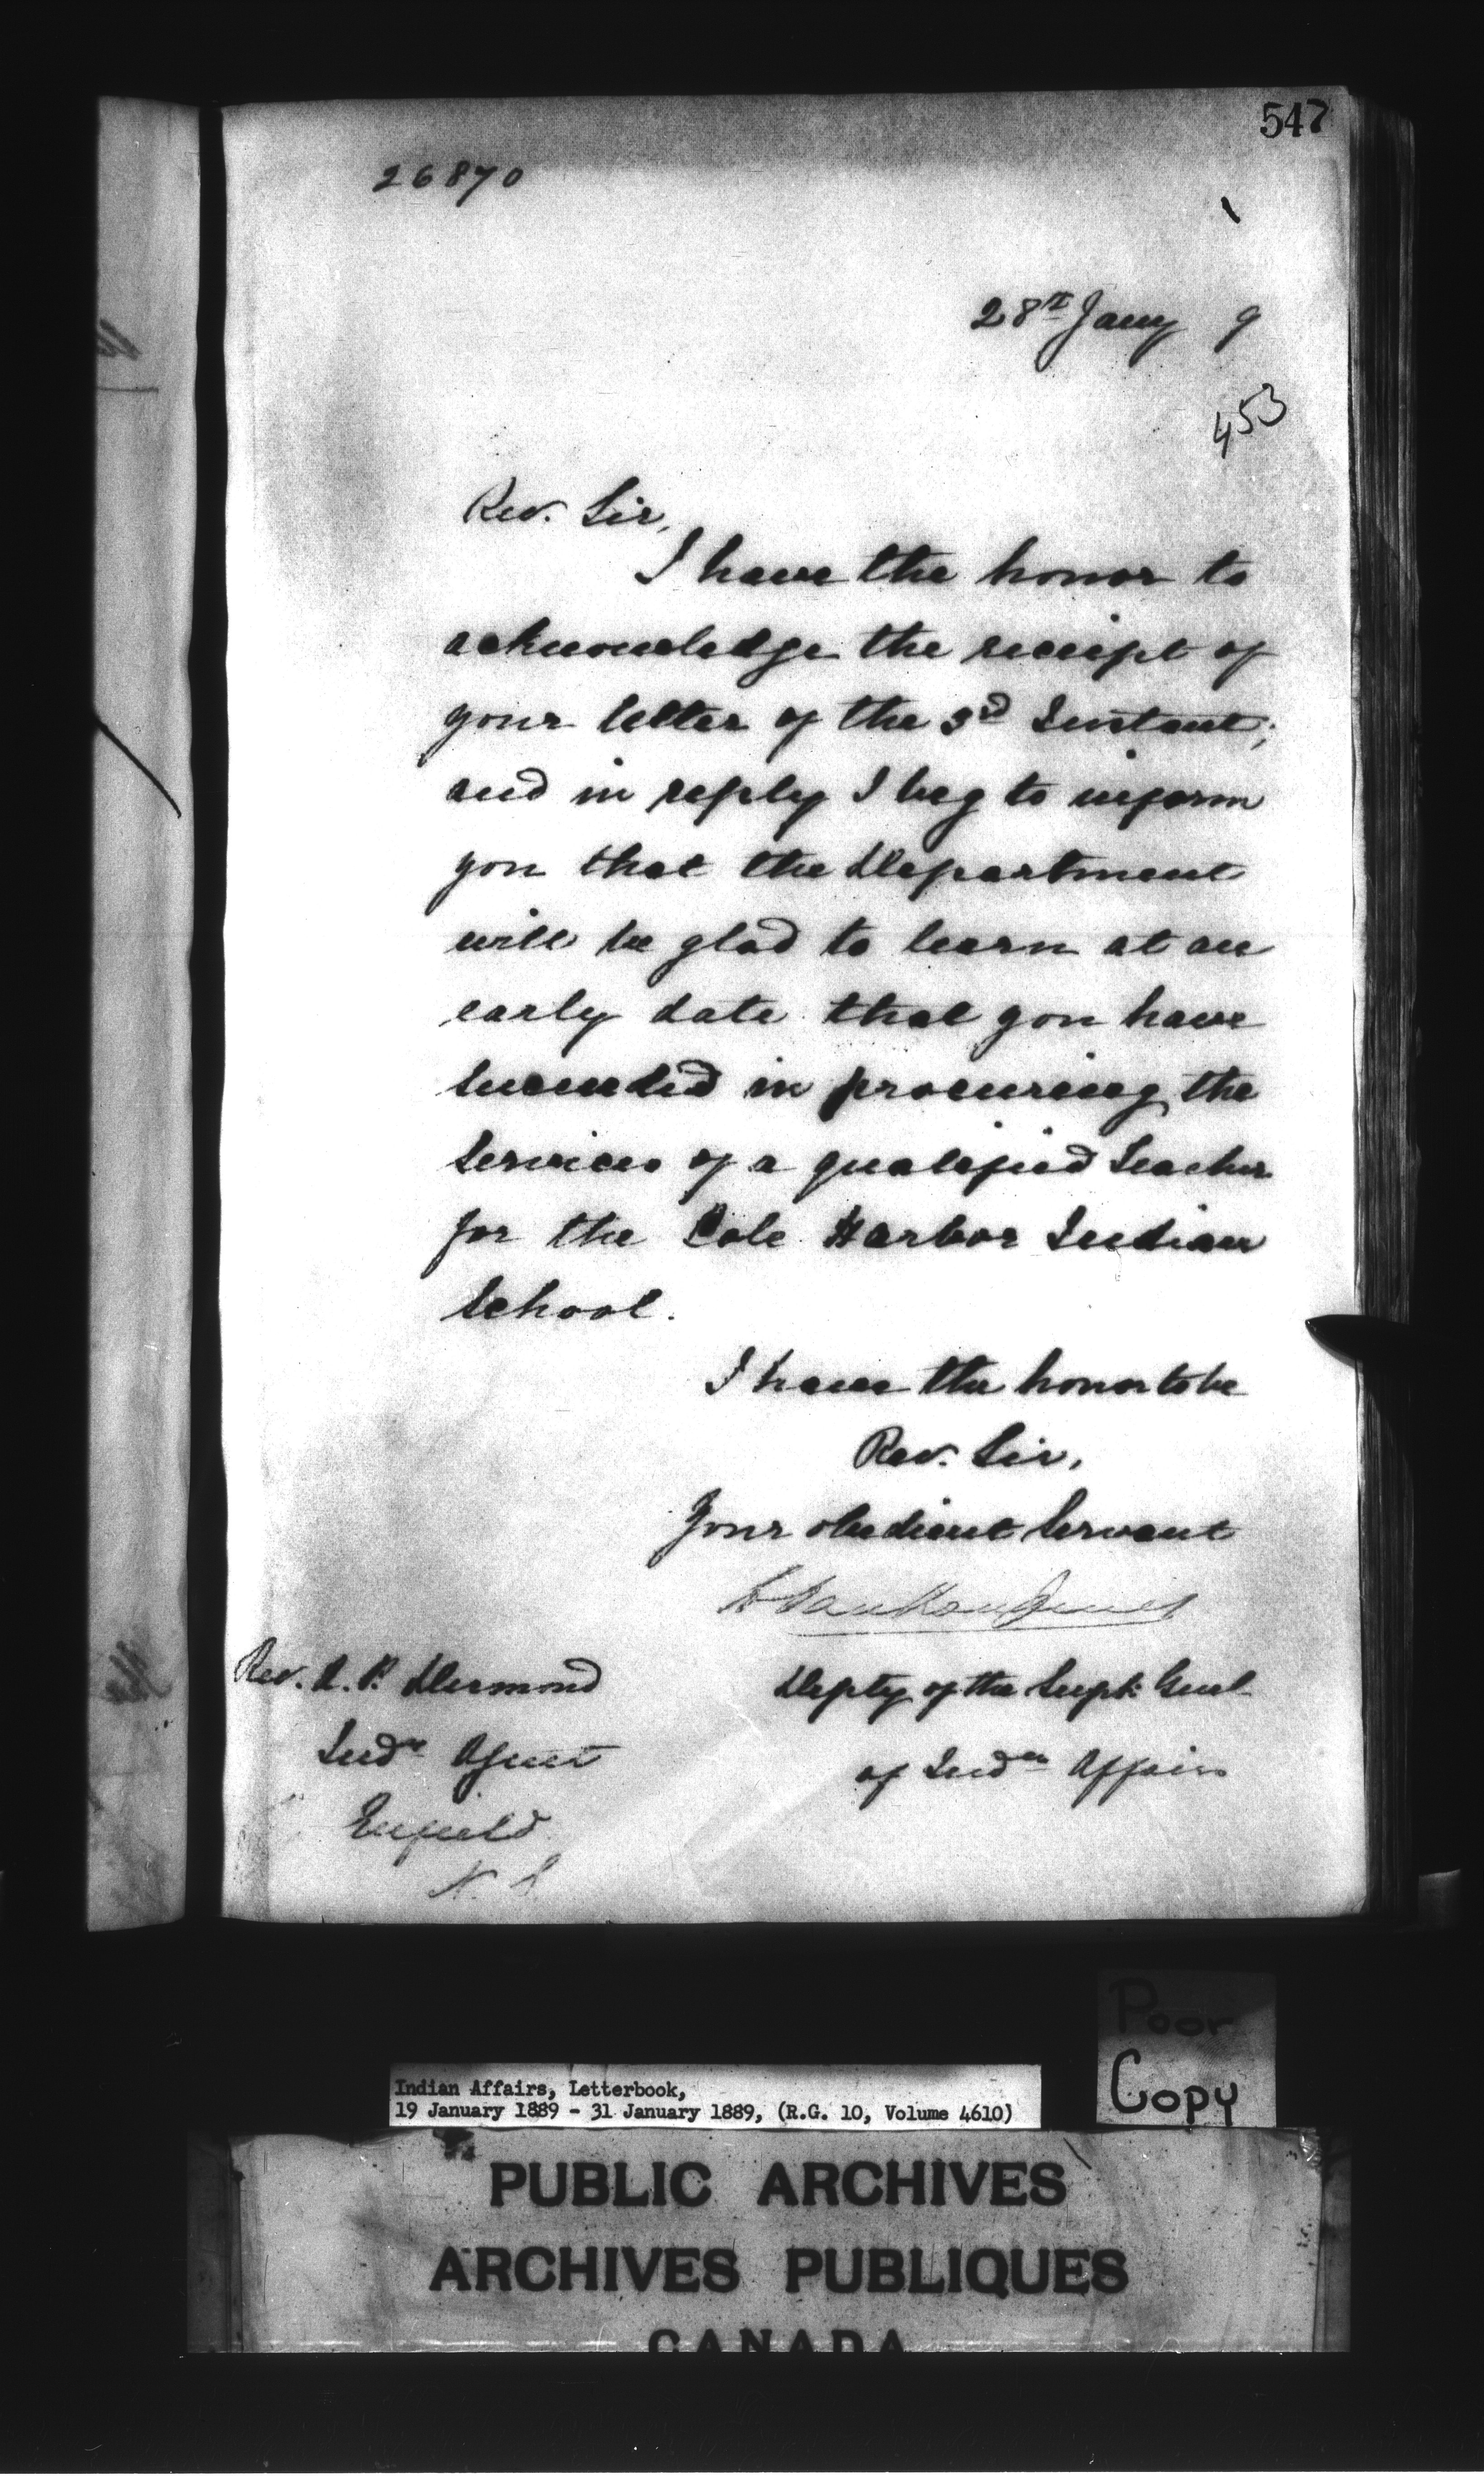 547
26870
28th Jany 9
453
Rev. Sir,
I have the honor to
acknowledge the receipt of
your letter of the 3rd Instant;
and in reply I beg to inform
you that the Department
will be glad to learn at an
early date that you have
succeeded in procuring the
services of a qualified Teacher
for the Cole Harbor Indian
School.
I have the honor to be
Rev. Sir,
Your obedient Servant
L VanKoughnet
Depty of the Supt. Genl
of Indn Affairs
Rev. D. P. Desmond
Indn Agent
Enfield
N. S.
Poor
Copy
Indian Affairs, Letterbook,
19 January 1889 - 31 January 1889, (R.G. 10, Volume 4610)
PUBLIC ARCHIVES
ARCHIVES PUBLIQUES
CANADA